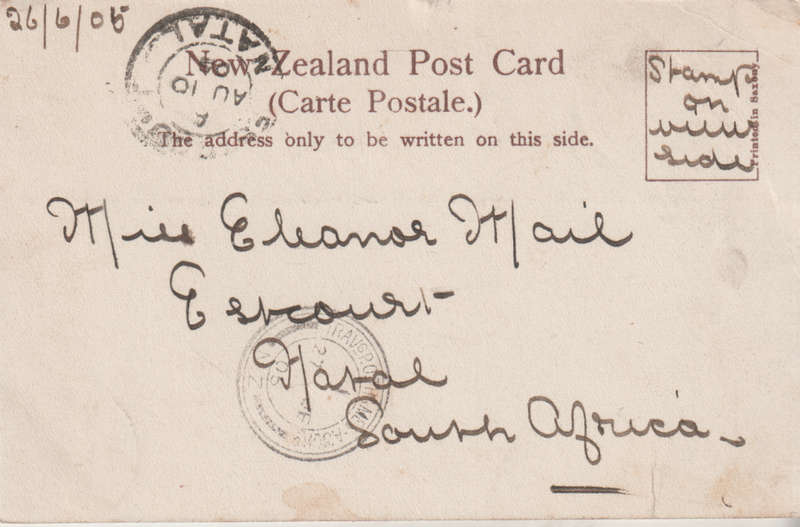 26/6/05
New Zealand Post Card
(Carte Postale.)
The address only to be written on this side.
NATAL
AU 10
Stamp
on
view
side
Printed in Saxony
Miss Eleanor Mail
Estcourt
Natal
South Africa